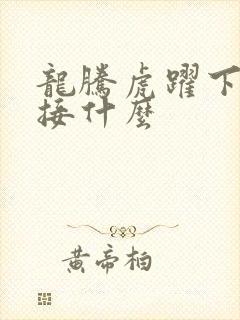 龍騰虎躍下
接什麼
黄帝柏